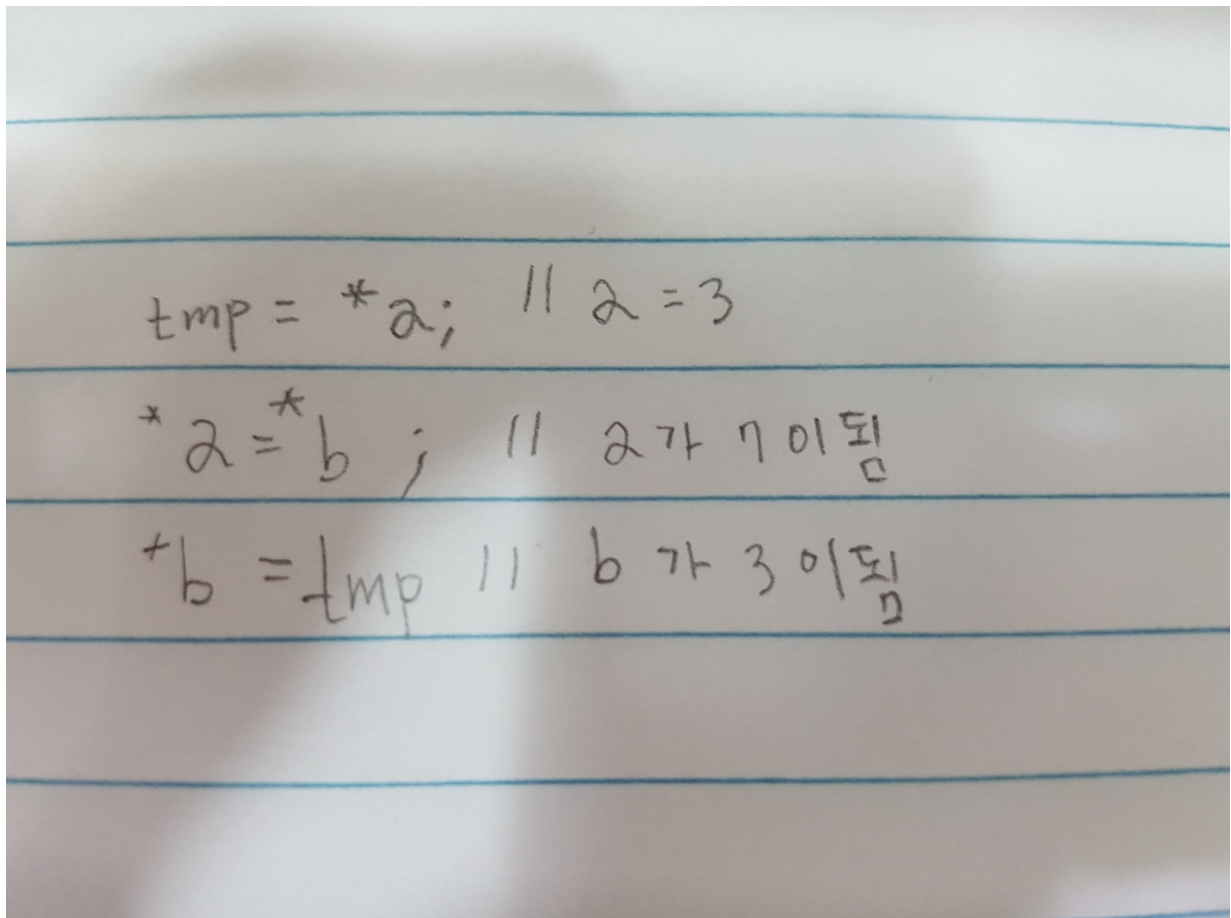 tmp = *a; // a = 3
*a = *b ; // a가 7이됨
*b = tmp // b가 3이됨